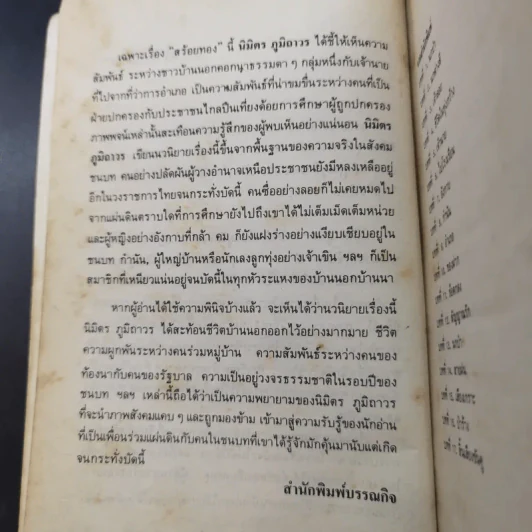 เฉพาะเรื่อง "สร้อยทอง" นี้ นิมิตร ภูมิถาวร ได้ชี้ให้เห็นความ
สัมพันธ์ ระหว่างชาวบ้านนอกคอกนาธรรมดา ๆ กลุ่มหนึ่งกับเจ้านาย
ที่ไปจากที่ว่าการอำเภอ เป็นความสัมพันธ์ที่น่าขมขื่นระหว่างคนที่เป็น
ฝ่ายปกครองกับประชาชนไกลปืนเที่ยงด้อยการศึกษาผู้ถูกปกครอง
ภาพพจน์เหล่านั้นสะเทือนความรู้สึกของผู้พบเห็นอย่างแน่นอน นิมิตร
ภูมิถาวร เขียนนวนิยายเรื่องนี้ขึ้นจากพื้นฐานของความจริงในสังคม
ชนบท คนอย่างปลัดผันผู้วางอำนาจเหนือประชาชนยังมีหลงเหลืออยู่
อีกในวงราชการไทยจนกระทั่งบัดนี้ คนซื่ออย่างลอยก็ไม่เคยหมดไป
จากแผ่นดินตราบใดที่การศึกษายังไปถึงเขาได้ไม่เต็มเม็ดเต็มหน่วย
และผู้หญิงอย่างอังกาบที่กล้า คม ก็ยังแฝงร่างอย่างเงียบเชียบอยู่ใน
ชนบท กำนัน, ผู้ใหญ่บ้านหรือนักเลงลูกทุ่งอย่างเจ้าเขิน ฯลฯ ก็เป็น
สมาชิกที่เหนียวแน่นอยู่จนบัดนี้ในทุกหัวระแหงของบ้านนอกบ้านนา
หากผู้อ่านได้ใช้ความพินิจบ้างแล้ว จะเห็นได้ว่านวนิยายเรื่องนี้
นิมิตร ภูมิถาวร ได้สะท้อนชีวิตบ้านนอกออกไว้อย่างมากมาย ชีวิต
ความผูกพันระหว่างคนร่วมหมู่บ้าน ความสัมพันธ์ระหว่างคนของ
ท้องนากับคนของรัฐบาล ความเป็นอยู่วงจรธรรมชาติในรอบปีของ
ชนบท ฯลฯ เหล่านี้ถือได้ว่าเป็นความพยายามของนิมิตร ภูมิถาวร
ที่จะนำภาพสังคมแคบ ๆ และถูกมองข้าม เข้ามาสู่ความรับรู้ของนักอ่าน
ที่เป็นเพื่อนร่วมแผ่นดินกับคนในชนบทที่เขาได้รู้จักมักคุ้นมานับแต่เกิด
จนกระทั่งบัดนี้
สำนักพิมพ์บรรณกิจ